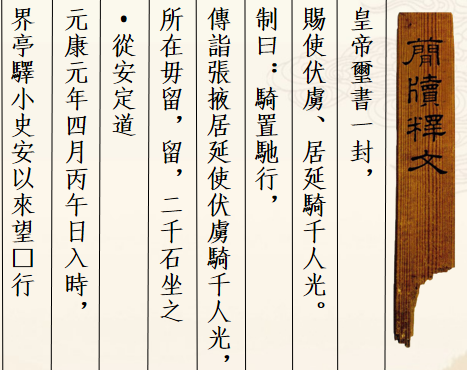 簡牘釋文
皇帝璽書一封，
賜使伏虜、居延騎千人光。
制曰：騎置馳行，
傳詣張掖居延使伏虜騎千人光，
所在毋留，留，二千石坐之
•從安定道
元康元年四月丙午日入時，
界亭驛小史安以來望□行